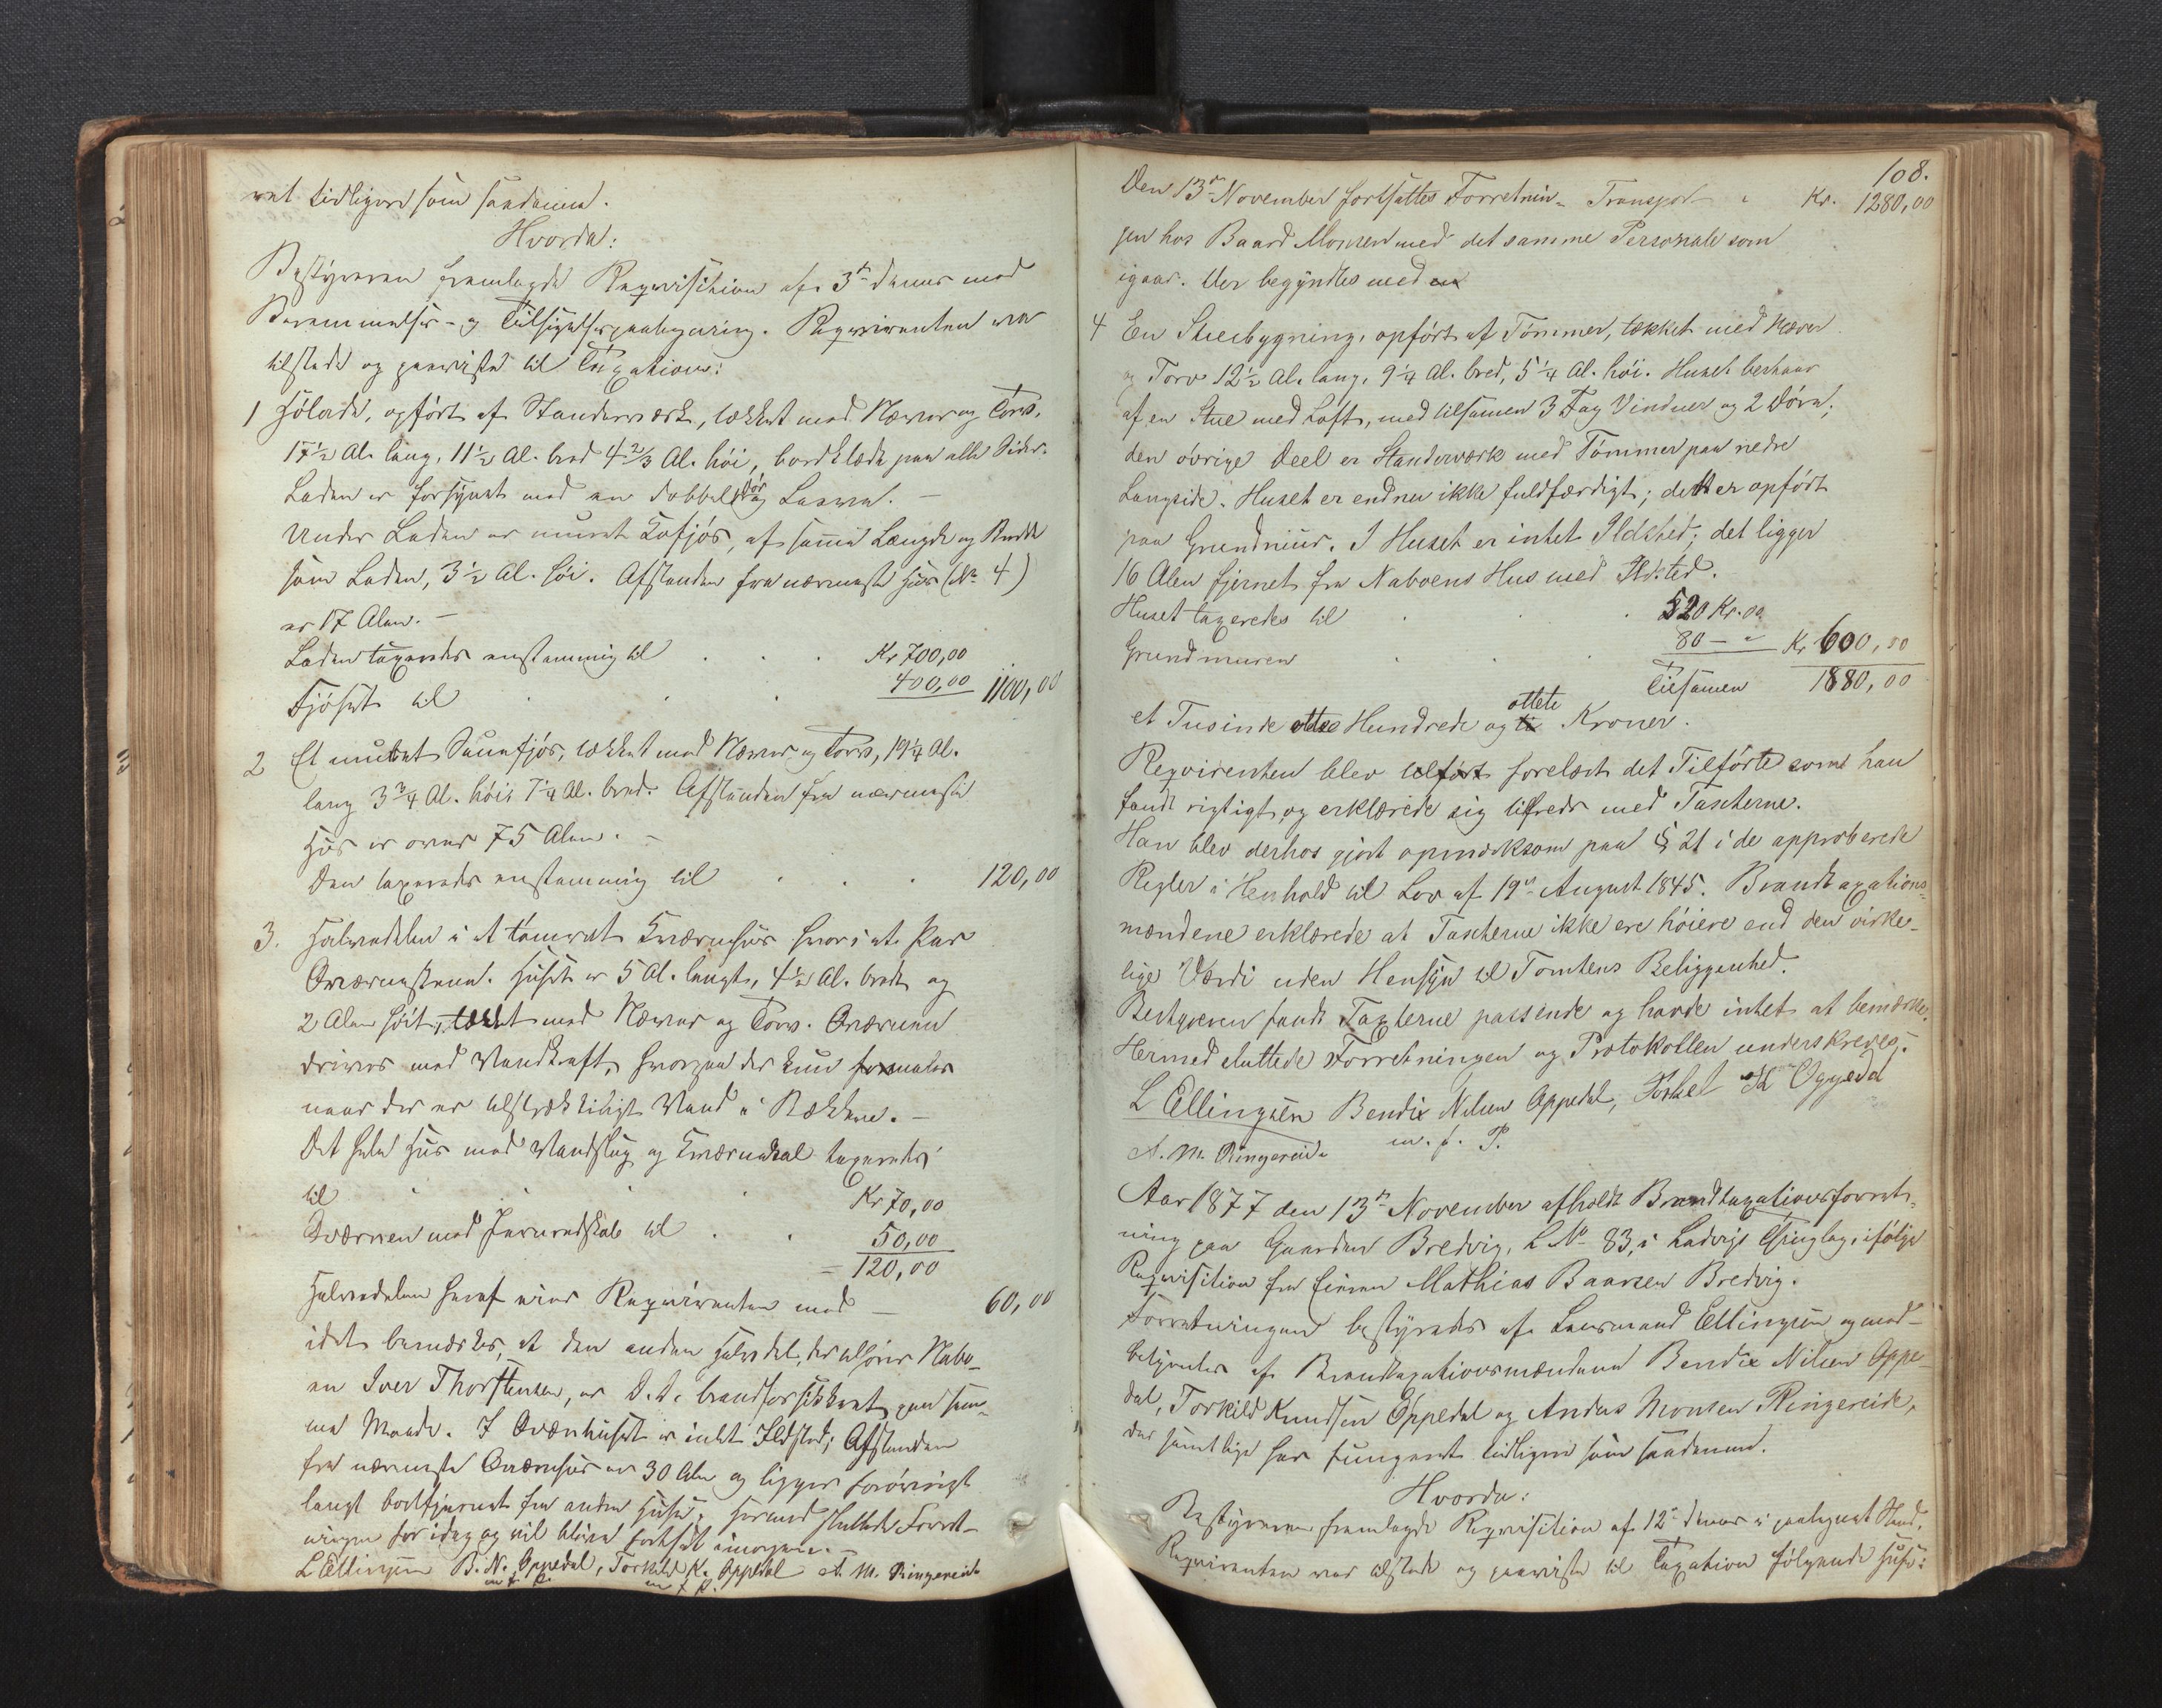 ret tidligere som saadanne.
Hvorda:
Bestyreren fremlagde Requisition af 3die dennes med
Berammelses- og Tilsigelsespaategning. Requirenten var
tilstede og paaviste til Taxation:
1 Hölade, opfört af Standerværk, tækket med Næver og Torv,
17½ Al. lang, 11½ Al. bred 4⅔ Al. höi, bordklædt paa alle Sider.
Laden er forsynet med en dobbelt Dör og Laave. –
Under Laden er muret Kofjös, af samme Længde og Bredde
som Laden, 3½ Al. höi. Afstanden fra nærmeste Huus (No 4)
er 17 Alen. –
Laden taxeredes enstemmig til . . . Kr 700,00
Fjöset til . . . 400,00 1100,00
2 Et muret Sauefjös, tækket med Næver og Torv, 19¼ Al.
lang 3¾ Al. höit 7¼ Al. bred. Afstanden fra nærmeste
Huus er over 75 Alen. –
Den taxeredes enstemmig til . . . 120,00
3. Halvedelen i et tömret Kværnhuus hvori et Par
Qværnstene. Huset er 5 Al. langt, 4½ Al. bredt og
2 Alen höit, tækket med Næver og Torv. Qværnen
drives med Vandkraft, hvorpaa der kun formales
naar der er tilstrækkeligt Vand i Bækken. –
Det hele Huus med Vandslug og Kværnekal taxeredes
til . . . Kr 70,00
Qværnen med Jernredskab til . . 50,00
= 120,00
Halvedelen heraf eier Requirenten med – 60,00
idet bemærkes, at den anden Halvdel, der tilhörer Nabo-
en Iver Thorstensen, er d. d. brandforsikkret paa sam-
me Maade. I Qværnhuset er intet Ildsted; Afstanden
fra nærmeste Qværnhuus er 30 Alen og ligger forövrigt
langt bortfjernet fra andre Huse. Hermed sluttede Forret-
ningen for idag og vil blive fortsat imorgen. –
L Ellingsen B. N. Oppedal, Torkild K. Oppedal A. M. Ringereide
m. f. P. m f P.
108.
Den 13de November fortsattes Forretnin- Transport " Kr. 1280,00
gen hos Baard Monsen med det samme Personale som
igaar. Der begyndtes med en
4 En Stuebygning, opfört af Tömmer, tækket med Næver
og Torv 12½ Al. lang, 9¼ Al. bred, 5¼ Al. höi. Huset bestaar
af en Stue med Loft, med tilsamen 3 Fag Vinduer og 2 Döre;
den övrige Deel er Standerværk med Tömmer paa nedre
Langside. Huset er endnu ikke fuldfærdigt; det er opfört
paa Grundmuur. I Huset er intet Ildsted; det ligger
16 Alen fjernet fra Naboens Hus med Ildsted.
Huset taxeredes til . . . 520 Kr. 00
Grundmuren . . . 80 – " Kr 600,00
Tilsamen 1880,00
et Tusinde otte Hundrede og ti otteti Kroner.
Reqvirenten blev tilfört forelæst det Tilförte som han
fandt rigtigt, og erklærede sig tilfreds med Taxterne.
Han blev derhos gjort opmærksom paa § 21 i de approberede
Regler i Henhold til Lov af 19de August 1845. Brandtaxations-
mændene erklærede at Taxterne ikke ere höiere end den virke-
lige Værdi uden Hensyn til Tomtens Beliggenhed.
Bestyreren fandt Taxterne passende og havde intet at bemærke.
Hermed sluttede Forretningen og Protokollen underskreves:
L Ellingsen Bendix Nilsen Oppedal, Torkel K Oppedal
A. M. Ringereide m. f. P.
Aar 1877 den 13de November afholdt Brandtaxationsforret-
ning paa Gaarden Bredvig, L No 83, i Ladvigs Thinglag, ifölge
Requisition fra Eieren Mathias Baarsen Bredvig.
Forretningen bestyredes af Lensmand Ellingsen og med-
betjentes af Brandtaxationsmændene Bendix Nilsen Oppe-
dal, Torkild Knudsen Oppedal og Andas Monsen Ringereide,
der samtlige har fungeret tidligere som saadanne.
Hvorda:
Bestyreren fremlagde Requisition af 12te dennes i paategnet Stand.
Requirenten var tilstede og paaviste til Taxation fölgende Huse: